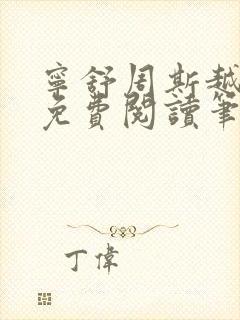 寧舒周斯越
免費閱讀筆
丁偉